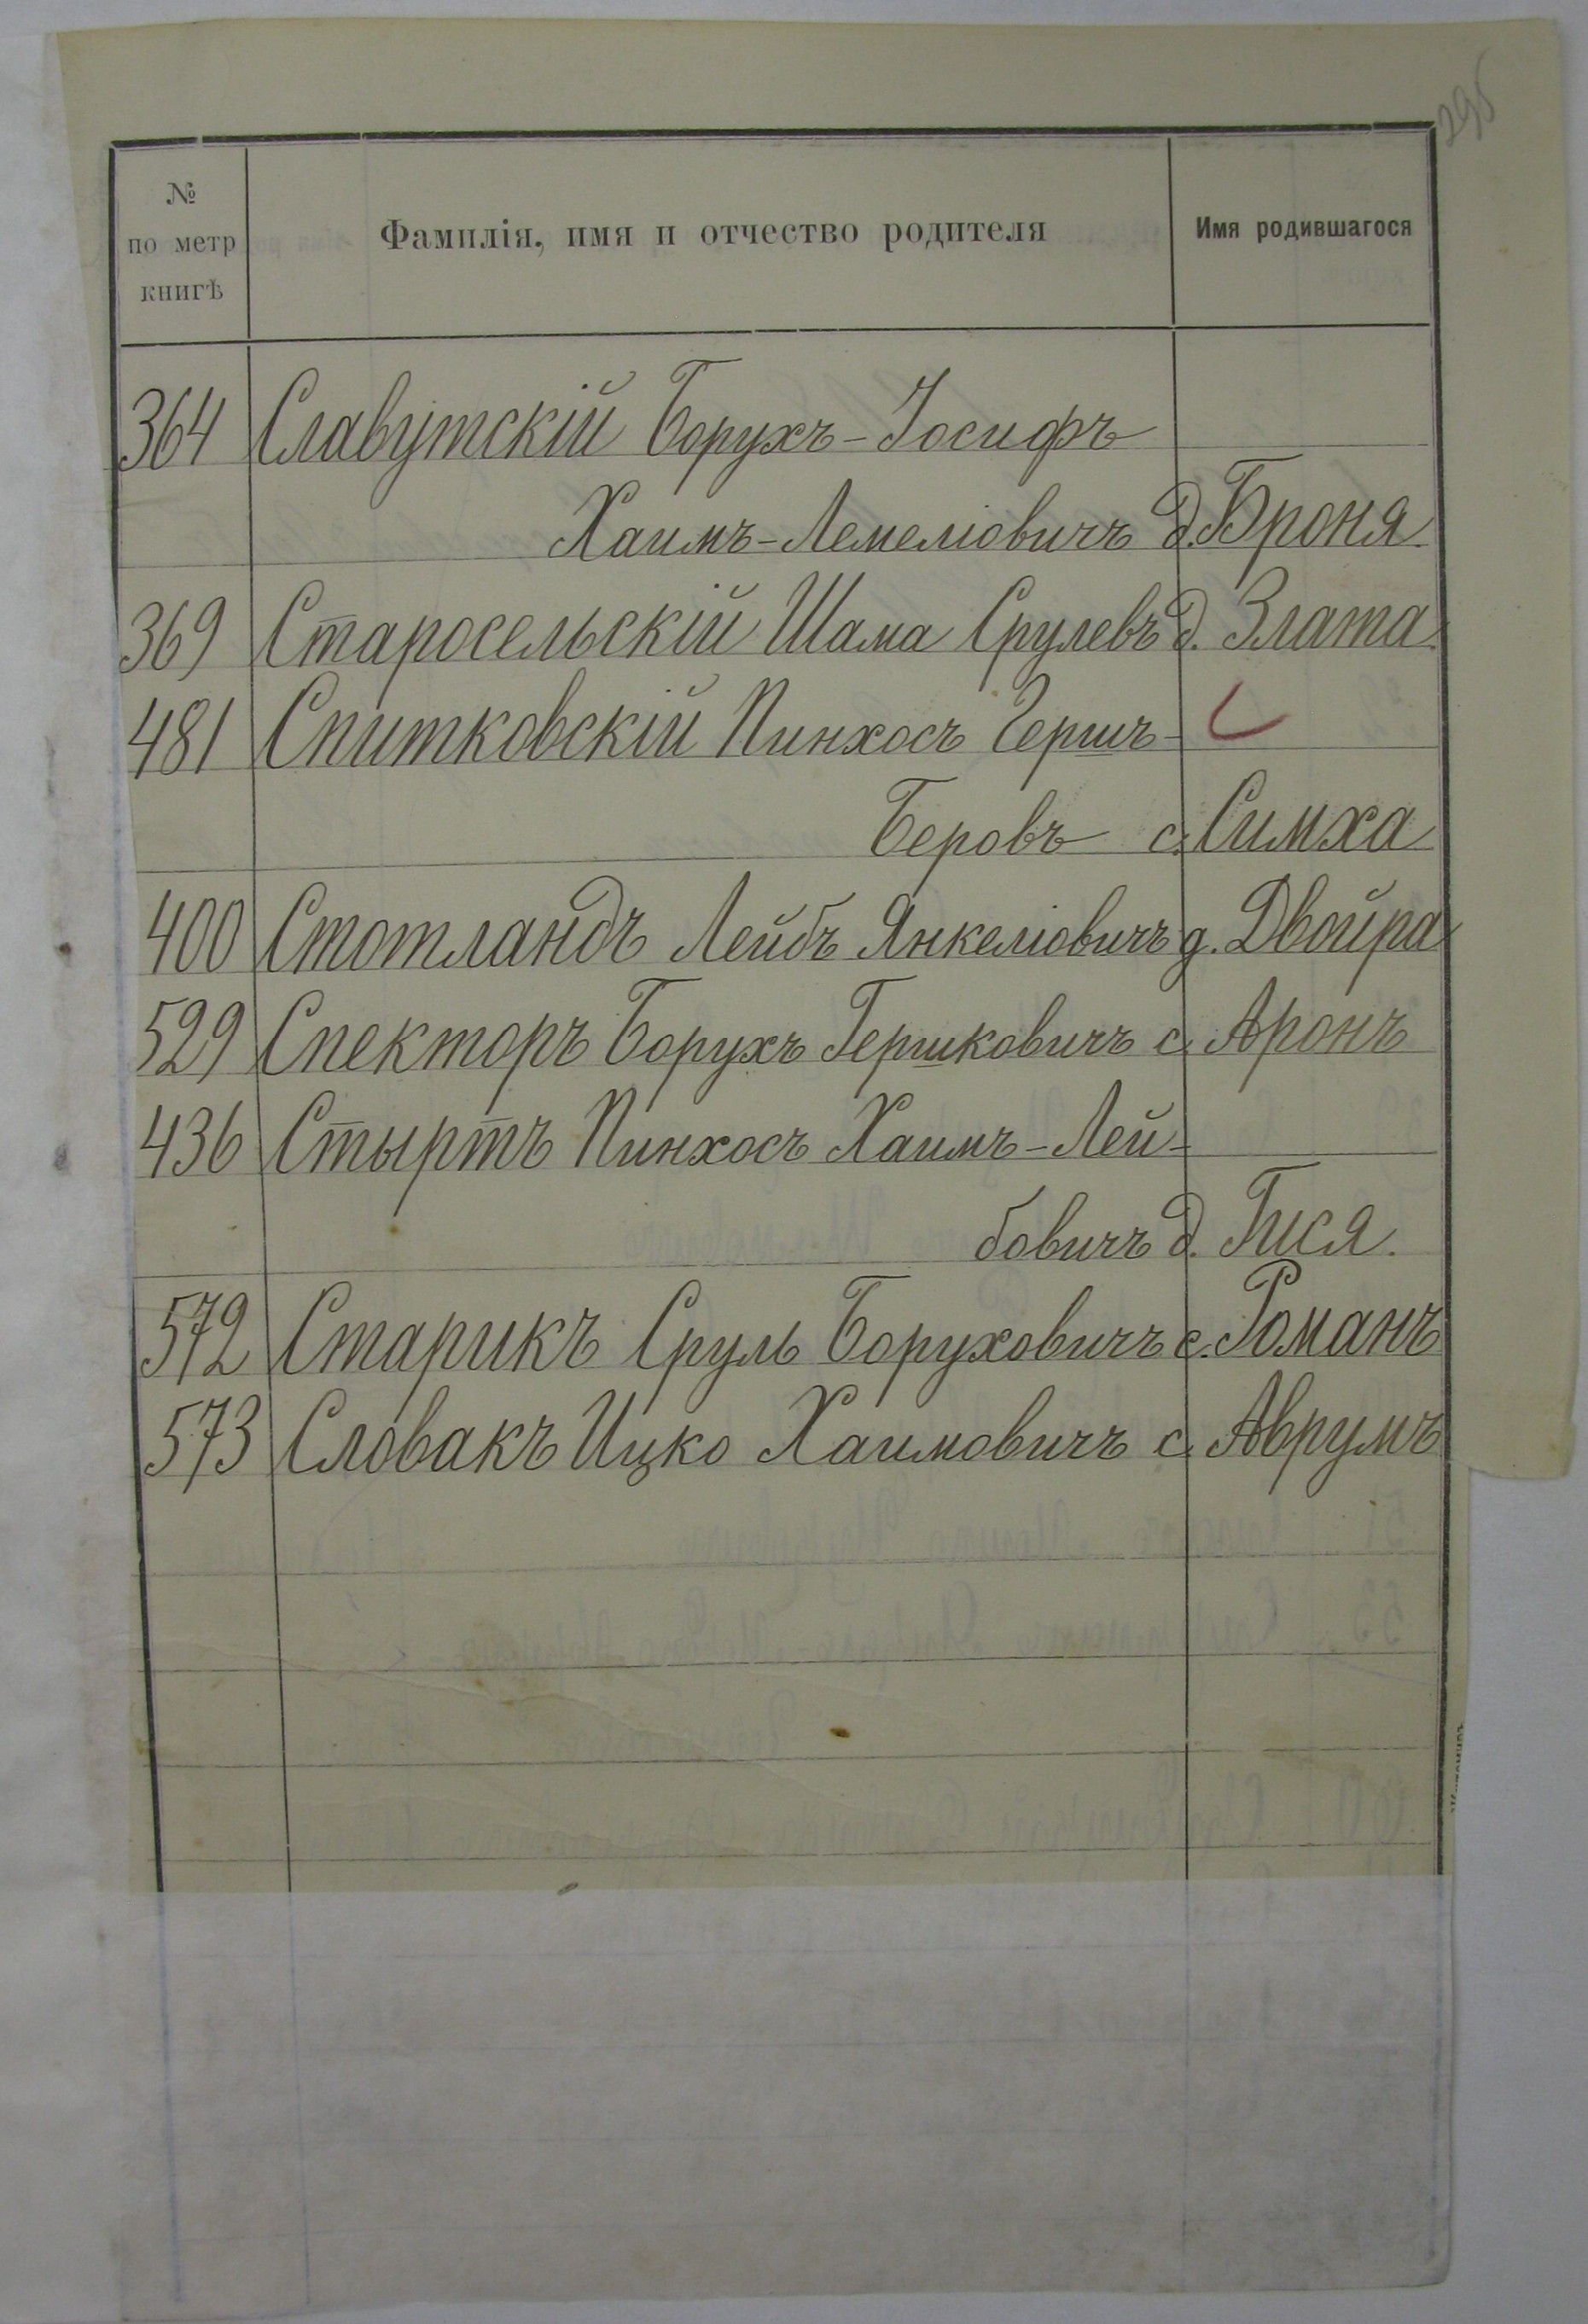 295
№
по метр
книгѣ
Фамилія, имя и отчество родителя
Имя родившагося
364 Славутскій Борухъ-Іосифъ
Хаимъ-Лемеліовичъ д. Броня.
369 Старосельскій Шама Срулевъ д. Злата.
481 Спитковскій Пинхосъ Гершъ-
Беровъ с. Симха
400 Стотландъ Лейбъ Янкеліовичъ д. Двойра
529 Спекторъ Борухъ Гершковичъ с. Аронъ
436 Стыртъ Пинхосъ Хаимъ-Лей-
бовичъ д. Гися.
572 Старикъ Сруль Боруховичъ с. Романъ
573 Словакъ Ицко Хаимовичъ с. Аврумъ